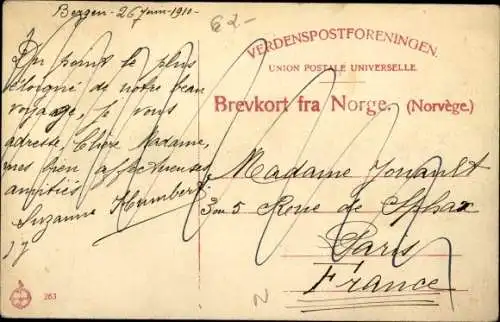 Bergen - 26 Juin - 1910 -
62-
VERDENSPOSTFORENINGEN.
UNION POSTALE UNIVERSELLE.
Brevkort fra Norge. (Norvège.)
Du point le plus
éloigné de notre beau
voyage, je vous
adresse, Chère Madame,
mes bien affectueuses
amitiés
Suzanne Humbert
Madame Jouault
3 ou 5 Rue de Sphax
Paris
France
N
263